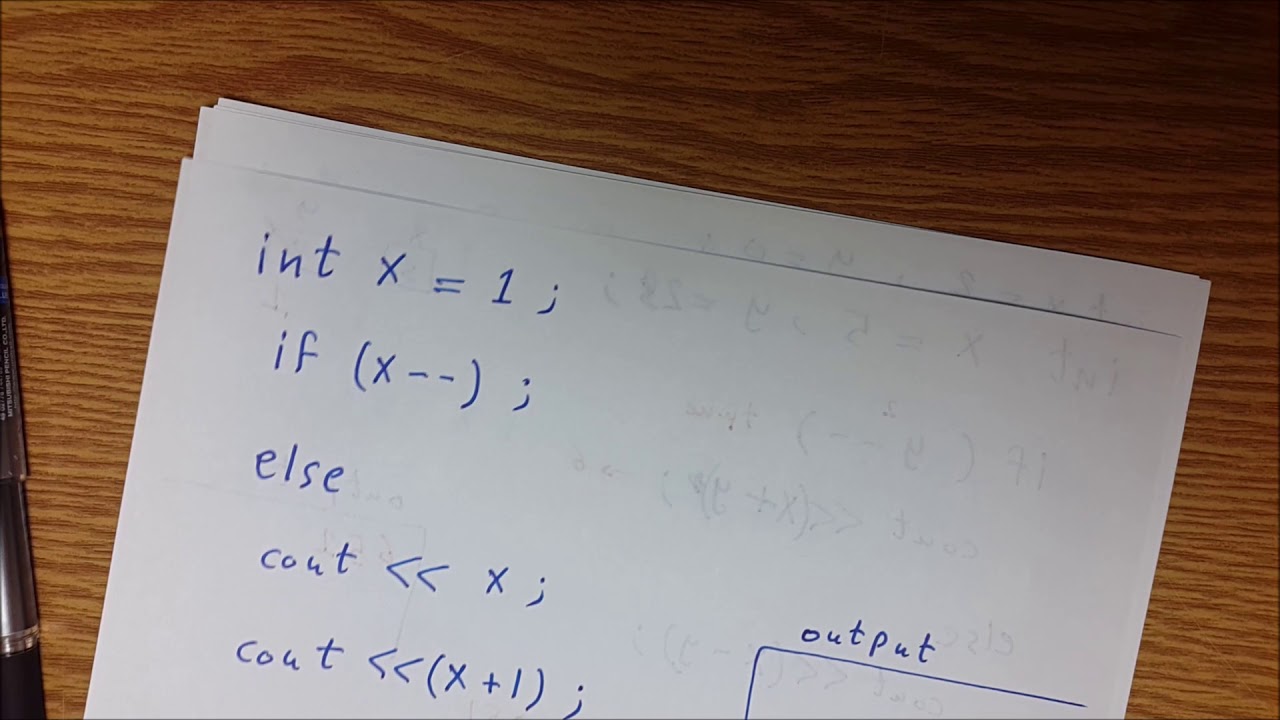 int x = 1 ;
if (x--) ;
else
cout << x ;
cout <<(x+1) ;
output